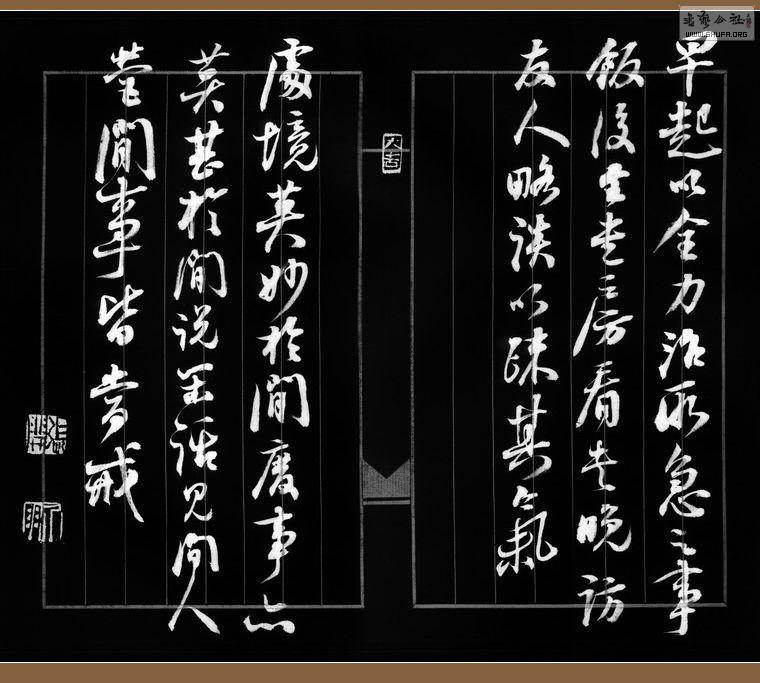 早起以全力治所急之事
飯後坐書房看書晚訪
友人略談以疎其氣
處境莫妙於閒廢事亦
莫甚於閒说閒話見閒人
營閒事皆當戒
大吉
WWW.SHUFA.ORG